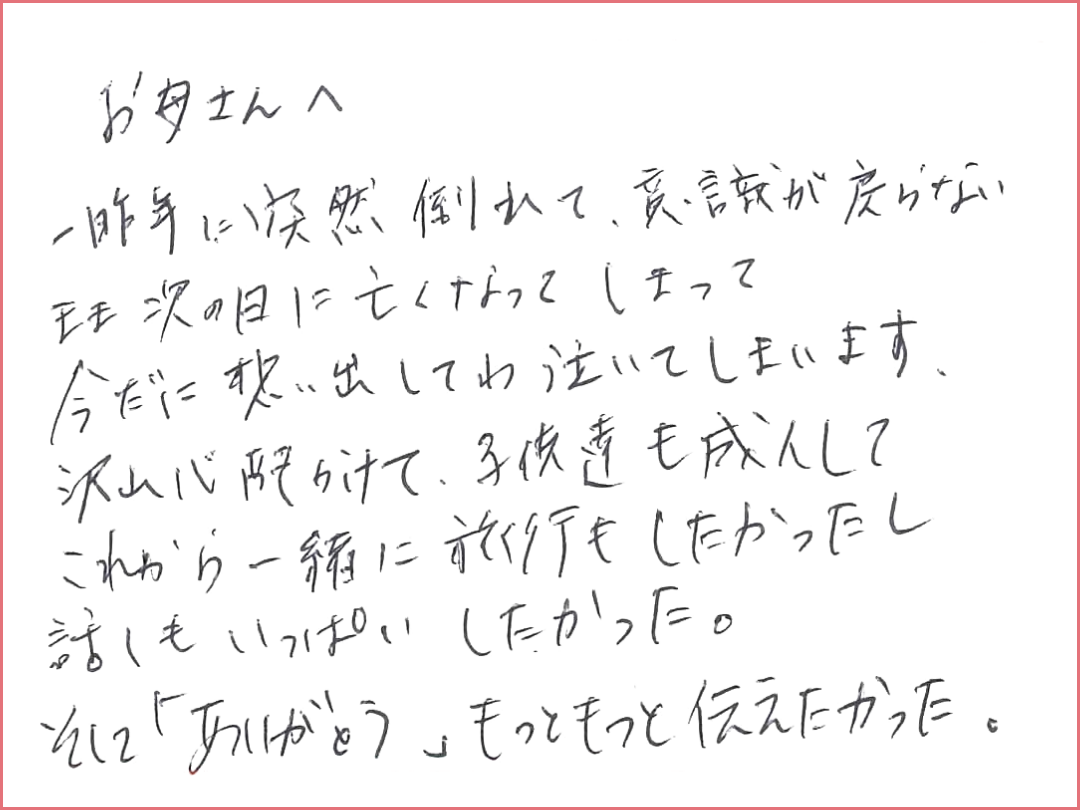 お母さんへ
一昨年に突然倒れて、意識が戻らない
まま次の日に亡くなってしまって
今だに想い出しては泣いてしまいます、
沢山心配かけて、子供達も成人して
これから一緒に旅行もしたかったし
話しもいっぱいしたかった。
そして「ありがとう」もっともっと伝えたかった。